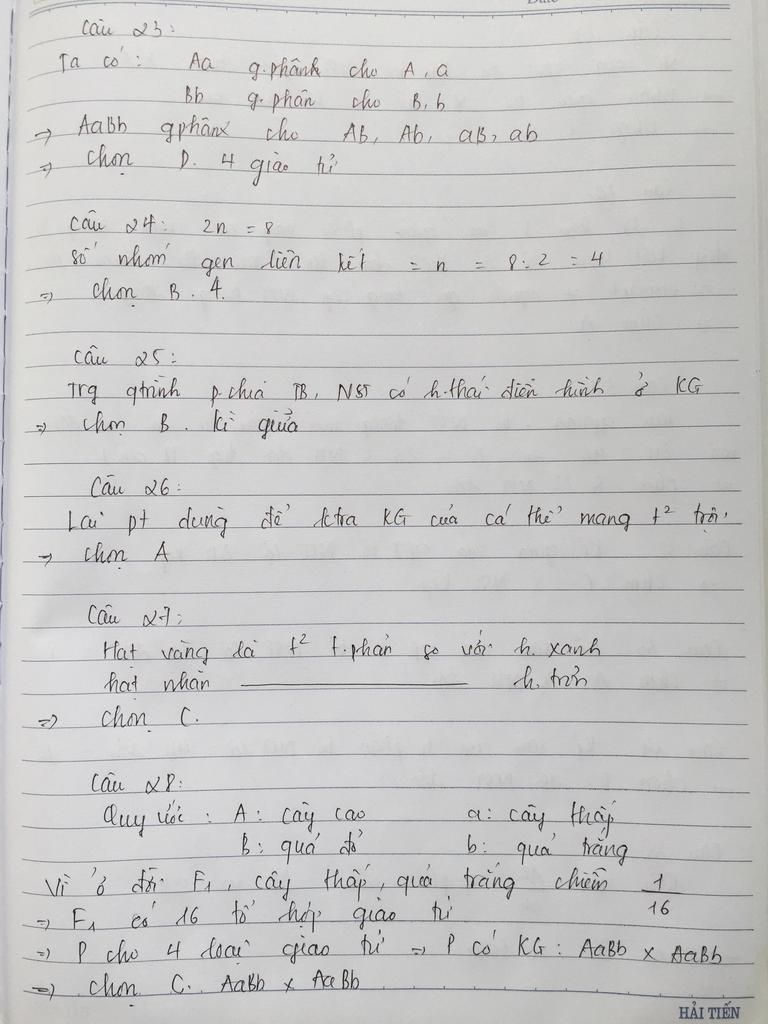 Câu 23:
Ta có: Aa g.phânx cho A, a
Bb g.phân cho B, b
=> AaBb gphânx cho Ab, Ab, aB, ab
=> chọn D. 4 giao tử
Câu 24: 2n = 8
số nhóm gen liên kết = n = 8:2 = 4
=> chọn B. 4.
Câu 25:
Trg qtrình p.chia TB, NST có h.thái điển hình ở KG
=> chọn B. kì giữa
Câu 26:
Lai pt dùng để ktra KG của cá thể mang t² trội.
=> chọn A
Câu 27:
Hạt vàng là t² t.phản so với h. xanh
hạt nhăn ——————— h. trơn
=> chọn C.
Câu 28:
Quy ước: A: cây cao a: cây thấp
B: quả đỏ b: quả trắng
Vì ở đời F₁, cây thấp, quả trắng chiếm 1/16
=> F₁ có 16 tổ hợp giao tử
=> P cho 4 loại giao tử => P có KG: AaBb x AaBb
=> chọn C. AaBb x AaBb
HẢI TIẾN